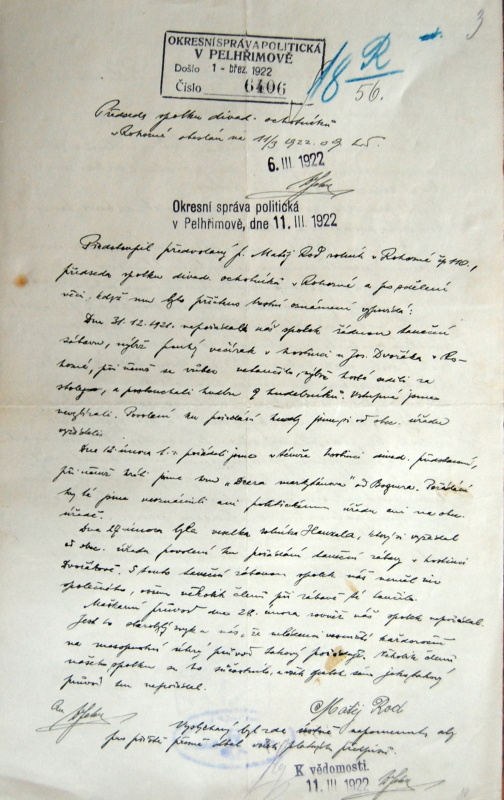 3
OKRESNÍ SPRÁVA POLITICKÁ
V PELHŘIMOVĚ
Došlo 1 - břez. 1922
Číslo 6406
18 R
56.
Předseda spolku divad. ochotníků
v Rohozné obeslán na 11/3 1922 o 9 hod.
6. III 1922
Okresní správa politická
v Pelhřimově, dne 11. III 1922
Předstoupil předvolaný p. Matěj Roď rolník v Rohozné čp 110,
předseda spolku divad. ochotníků v Rohozné a po sdělení
věci, když mu bylo přečteno trestní oznámení vypovídá:
Dne 31.12.1921. nepořádal náš spolek řádnou taneční
zábavu, nýbrž pouhý večírek v hostinci u Jos. Dvořáka v Ro-
hozné, při němž se vůbec netančilo, nýbrž hosté seděli za
stoly, a poslouchali hudbu 9 hudebníků. Vstupné jsme
nevybírali. Povolení ku pořádání hudby jsme si od obc. úřadu
vyžádali.
Dne 12. února t.r. pořádali jsme v témže hostinci divad. představení,
při němž hráli jsme hru „Dcera od Bognera. Pořádání
hry té jsme neoznámili ani politickému úřadu ani na obc.
úřadě.
Dne 27. února byla veselka rolníka který si vyžádal
od obc. úřadu povolení ku pořádání taneční zábavy v hostinci
Dvořákově. S touto taneční zábavou spolek náš neměl nic
společného, vyjma několik členů při zábavě té tančilo.
Maškarní průvod dne 28. února rovněž náš spolek nepořádal.
Jest to starobylý zvyk u nás, že mládenci vesničtí každoročně
na masopustní úterý průvod takový pořádají. Několik členů
našeho spolku se ho súčastnilo, avšak spolek sám jako takový
průvod ten nepořádal.
Matěj Roď
Vyslýchaný byl zde ústně napomenut, aby
pro příště přesně dbal všech platných předpisů.
K vědomosti.
11. III. 1922